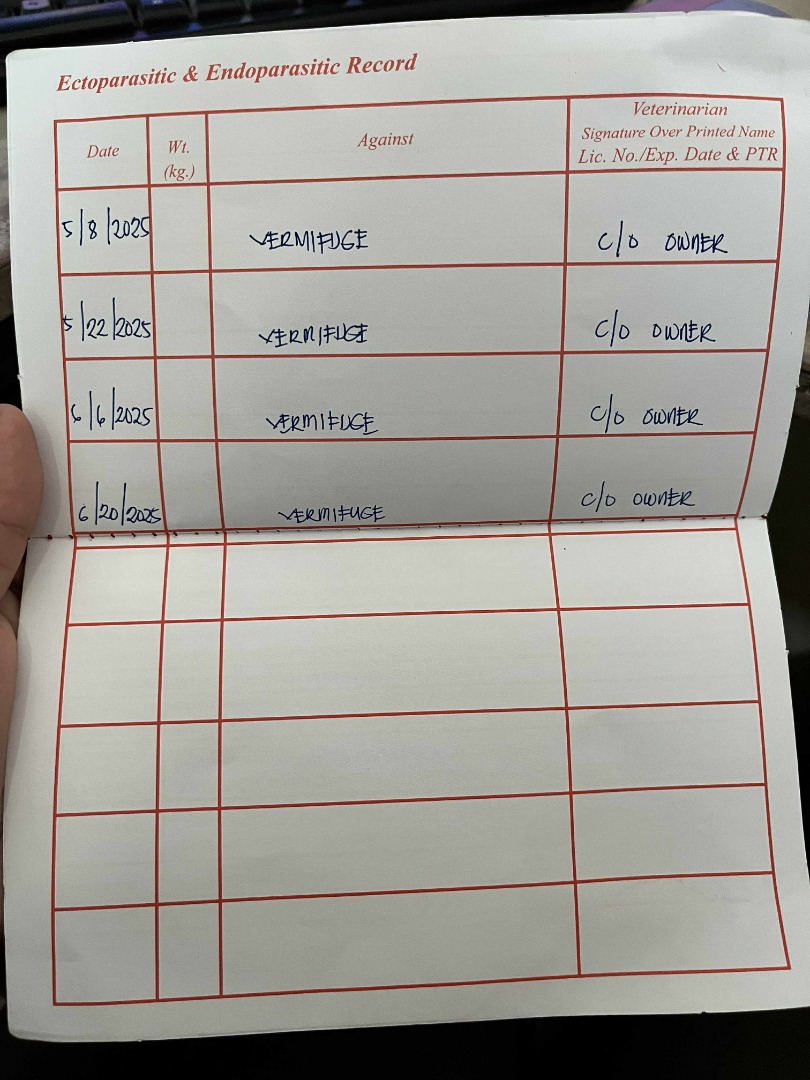 Ectoparasitic & Endoparasitic Record
Date Wt. (kg.) Against Veterinarian Signature Over Printed Name Lic. No./Exp. Date & PTR
5/8/2025 VERMIFUGE C/O OWNER
5/22/2025 VERMIFUGE C/O OWNER
6/6/2025 VERMIFUGE C/O OWNER
6/20/2025 VERMIFUGE C/O OWNER